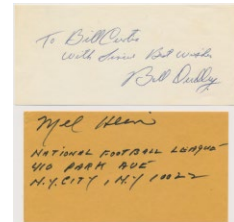 To Bill Curtis
with Best wishes
Bill Dudley
Mel Hein
NATIONAL FOOTBALL LEAGUE
410 PARK AVE
N.Y. CITY, N.Y 10022